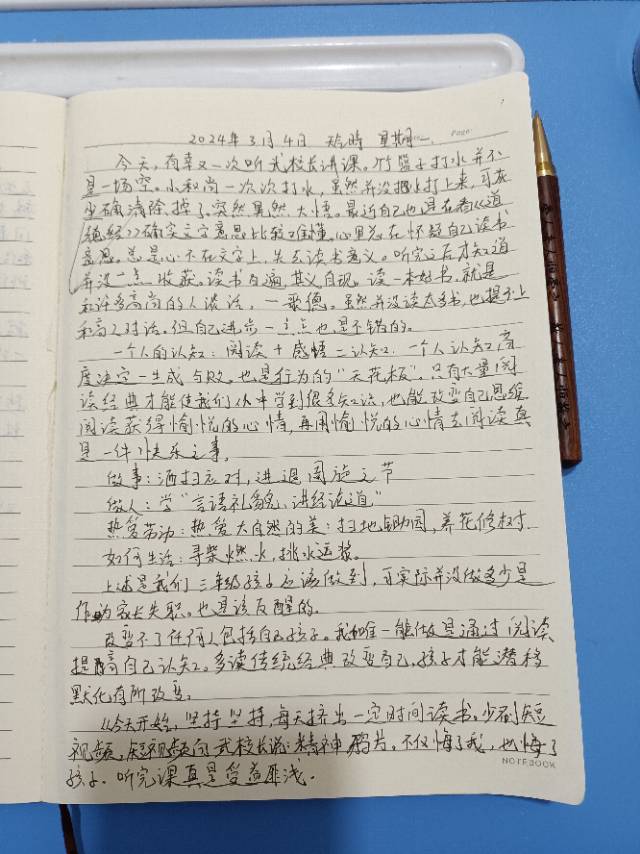 2024年3月4日 天气晴 星期一. Page:
今天,有幸又一次听武校长讲课。竹篮子打水并不
是一场空。小和尚一次次打水,虽然并没把水打上来,可灰
尘确清除掉了。突然晃然大悟。最近自己也是在看《道
德经》确实文字意思比较难懂。心里总在怀疑自己读书
意思。总是心不在文字上,失去读书意义。听完之后才知道
并没一点收获。读书百遍,其义自现。读一本好书,就是
和许多高尚的人谈话,——歌德。虽然并没读太多书,也提不上
和高人对话。但自己进步一点点也是不错的。
一个人的认知:阅读+感悟=认知.一个人认知高
度决定一生成与败。也是行为的"天花板"。只有大量阅
读经典才能使我们从中学到很多知识,也能改变自己思维
阅读获得愉悦的心情,再用愉悦的心情去阅读真
是一件快乐之事。
做事:洒扫应对,进退周旋之节
做人:学"言语礼貌,讲经说道"
热爱劳动:热爱大自然的美:扫地锄园,养花修树.
如何生活:寻柴燃火,挑水运浆。
上述是我们三年级孩子应该做到,可实际并没做多少是
作为家长失职。也是该反醒的。
改变不了任何人包括自己孩子。我唯一能做是通过阅读
提高自己认知。多读传统经典改变自己,孩子才能潜移
默化有所改变。
从今天开始,坚持坚持,每天挤出一定时间读书,少刷短
视频,短视频向武校长说:精神鸦片。不仅悔了我,也悔了
孩子.听完课真是受益匪浅.
NOTEBOOK